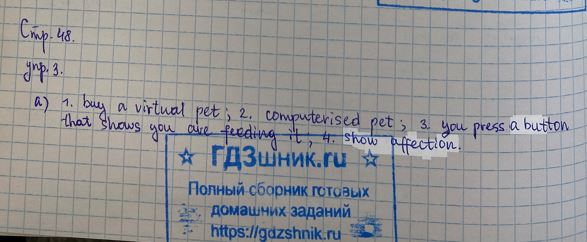 Стр. 48.
упр. 3.
а) 1. buy a virtual pet; 2. computerised pet; 3. you press a button
that shows you are feeding it; 4. show affection.
ГДЗшник.ru
Полный сборник готовых
домашних заданий
https://gdzshnik.ru